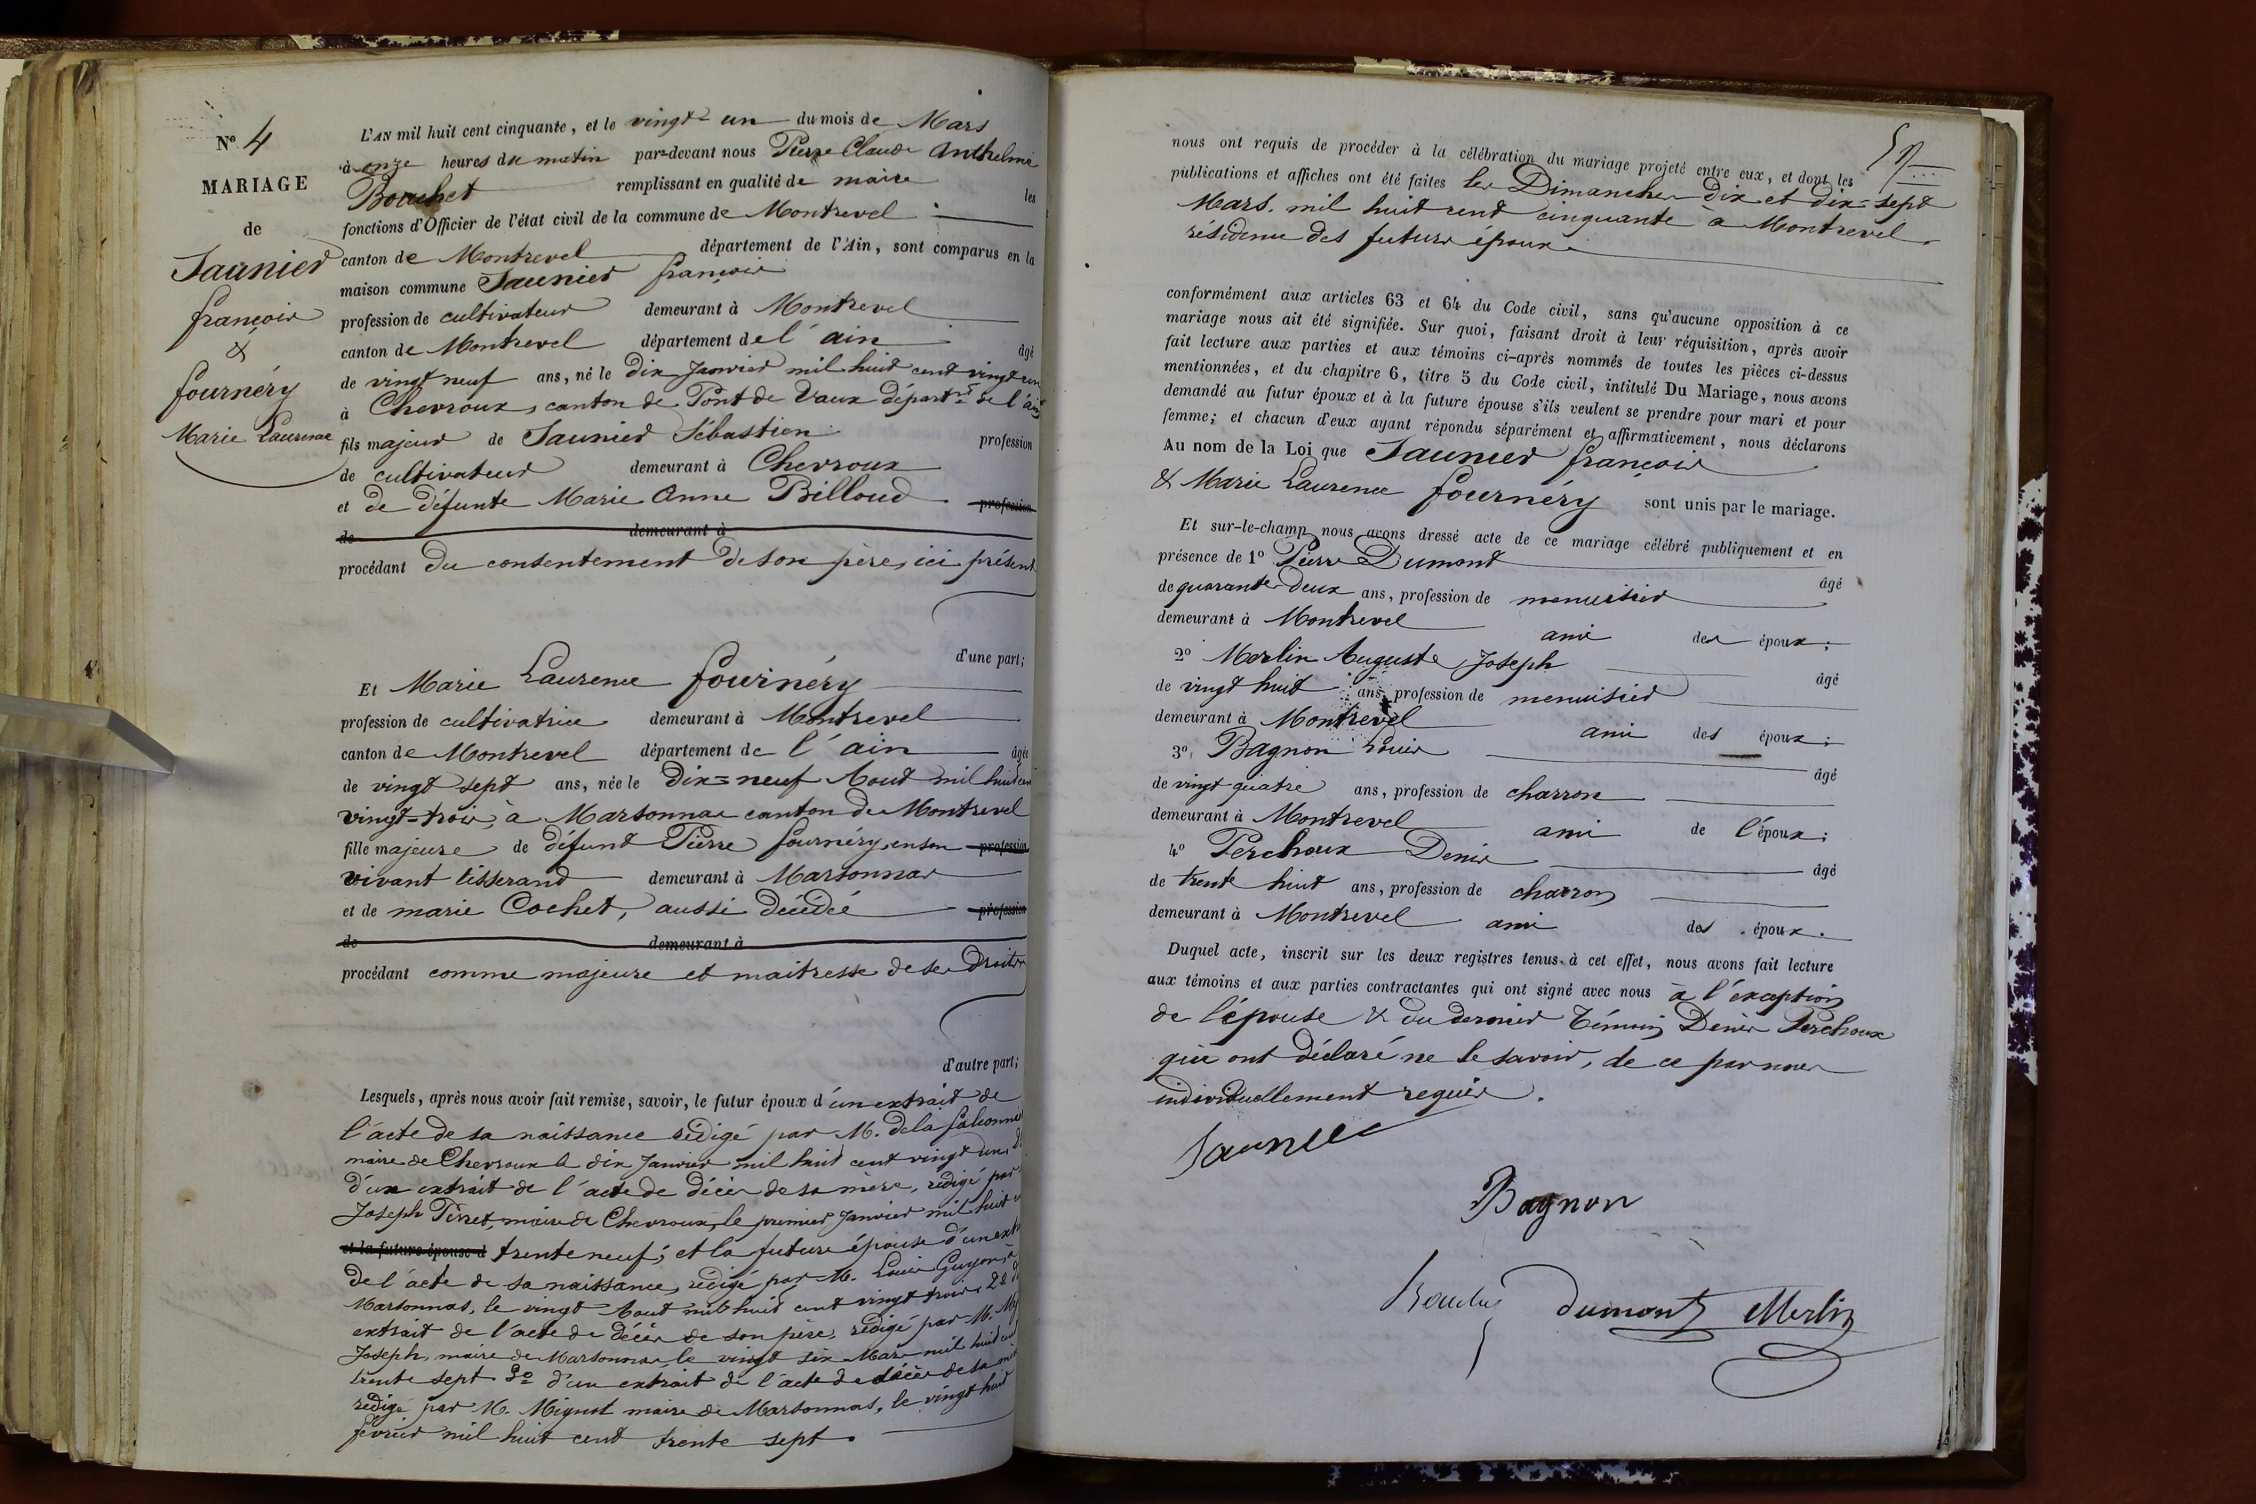 N° 4
MARIAGE
de
Saunier
françois
&
fournéry
Marie Laurence
L'AN mil huit cent cinquante, et le vingt-un du mois de Mars
à onze heures du matin par-devant nous Pierre Claude Anthelme
Bouchet remplissant en qualité de maire les
fonctions d'Officier de l'état civil de la commune de Montrevel
canton de Montrevel département de l'Ain, sont comparus en la
maison commune Saunier françois
profession de cultivateur demeurant à Montrevel
canton de Montrevel département de l'ain âgé
de vingt neuf ans, né le dix Janvier mil huit cent vingt un
à Chevroux, canton de Pont de Vaux départ.nt de l'ain
fils majeur de Saunier Sébastien profession
de cultivateur demeurant à Chevroux
et de défunte Marie Anne Billoud profession
de demeurant à
procédant du consentement de son père, ici présent
d'une part;
Et Marie Laurence fournéry
profession de cultivatrice demeurant à Montrevel
canton de Montrevel département de l'ain âgée
de vingt sept ans, née le dix-neuf Aout mil huit cent
vingt-trois, à Marsonnas canton de Montrevel
fille majeure de défunt Pierre fournéry, en son profession
vivant tisserand demeurant à Marsonnas
et de marie Cochet, aussi décédée profession
de demeurant à
procédant comme majeure et maitresse de ses droits
d'autre part;
Lesquels, après nous avoir fait remise, savoir, le futur époux d'un extrait de
l'acte de sa naissance rédigé par M. dela
maire de Chevroux le dix Janvier mil huit cent vingt un,
d'un extrait de l'acte de décès de sa mère, rédigé par
Joseph Perret, maire de Chevroux, le premier Janvier mil huit
et la future épouse d trente neuf; et la future épouse d'un
de l'acte de sa naissance, rédigé par M. Louis Guyon, à
Marsonnas, le vingt Aout mil huit cent vingt trois, 2°
extrait de l'acte de décès de son père, rédigé par M.
Joseph, maire de Marsonnas le vingt six Mars mil huit cent
trente sept 3° d'un extrait de l'acte de décès de sa mère
rédigé par M. Mignot maire de Marsonnas, le vingt huit
février mil huit cent trente sept.
nous ont requis de procéder à la célébration du mariage projeté entre eux, et dont les
publications et affiches ont été faites les Dimanches dix et dix-sept
Mars, mil huit cent cinquante à Montrevel,
résidence des futurs époux
conformément aux articles 63 et 64 du Code civil, sans qu'aucune opposition à ce
mariage nous ait été signifiée. Sur quoi, faisant droit à leur réquisition, après avoir
fait lecture aux parties et aux témoins ci-après nommés de toutes les pièces ci-dessus
mentionnées, et du chapitre 6, titre 5 du Code civil, intitulé Du Mariage, nous avons
demandé au futur époux et à la future épouse s'ils veulent se prendre pour mari et pour
femme; et chacun d'eux ayant répondu séparément et affirmativement, nous déclarons
Au nom de la Loi que Saunier françois
& Marie Laurence fournéry sont unis par le mariage.
Et sur-le-champ nous avons dressé acte de ce mariage célébré publiquement et en
présence de 1° Pierre Dumont âgé
de quarante deux ans, profession de menuisier
demeurant à Montrevel ami des époux;
2° Merlin Auguste Joseph âgé
de vingt huit ans, profession de menuisier
demeurant à Montrevel ami des époux;
3° Bagnon Louis âgé
de vingt quatre ans, profession de charron
demeurant à Montrevel ami de l'époux;
4° Perchoux Denis âgé
de trente huit ans, profession de charron
demeurant à Montrevel ami des époux.
Duquel acte, inscrit sur les deux registres tenus à cet effet, nous avons fait lecture
aux témoins et aux parties contractantes qui ont signé avec nous à l'exception
de l'épouse & du dernier témoin Denis Perchoux
qui ont déclaré ne le savoir, de ce par nous
individuellement requis.
Saunier
Bagnon
Bouchet dumont Merlin